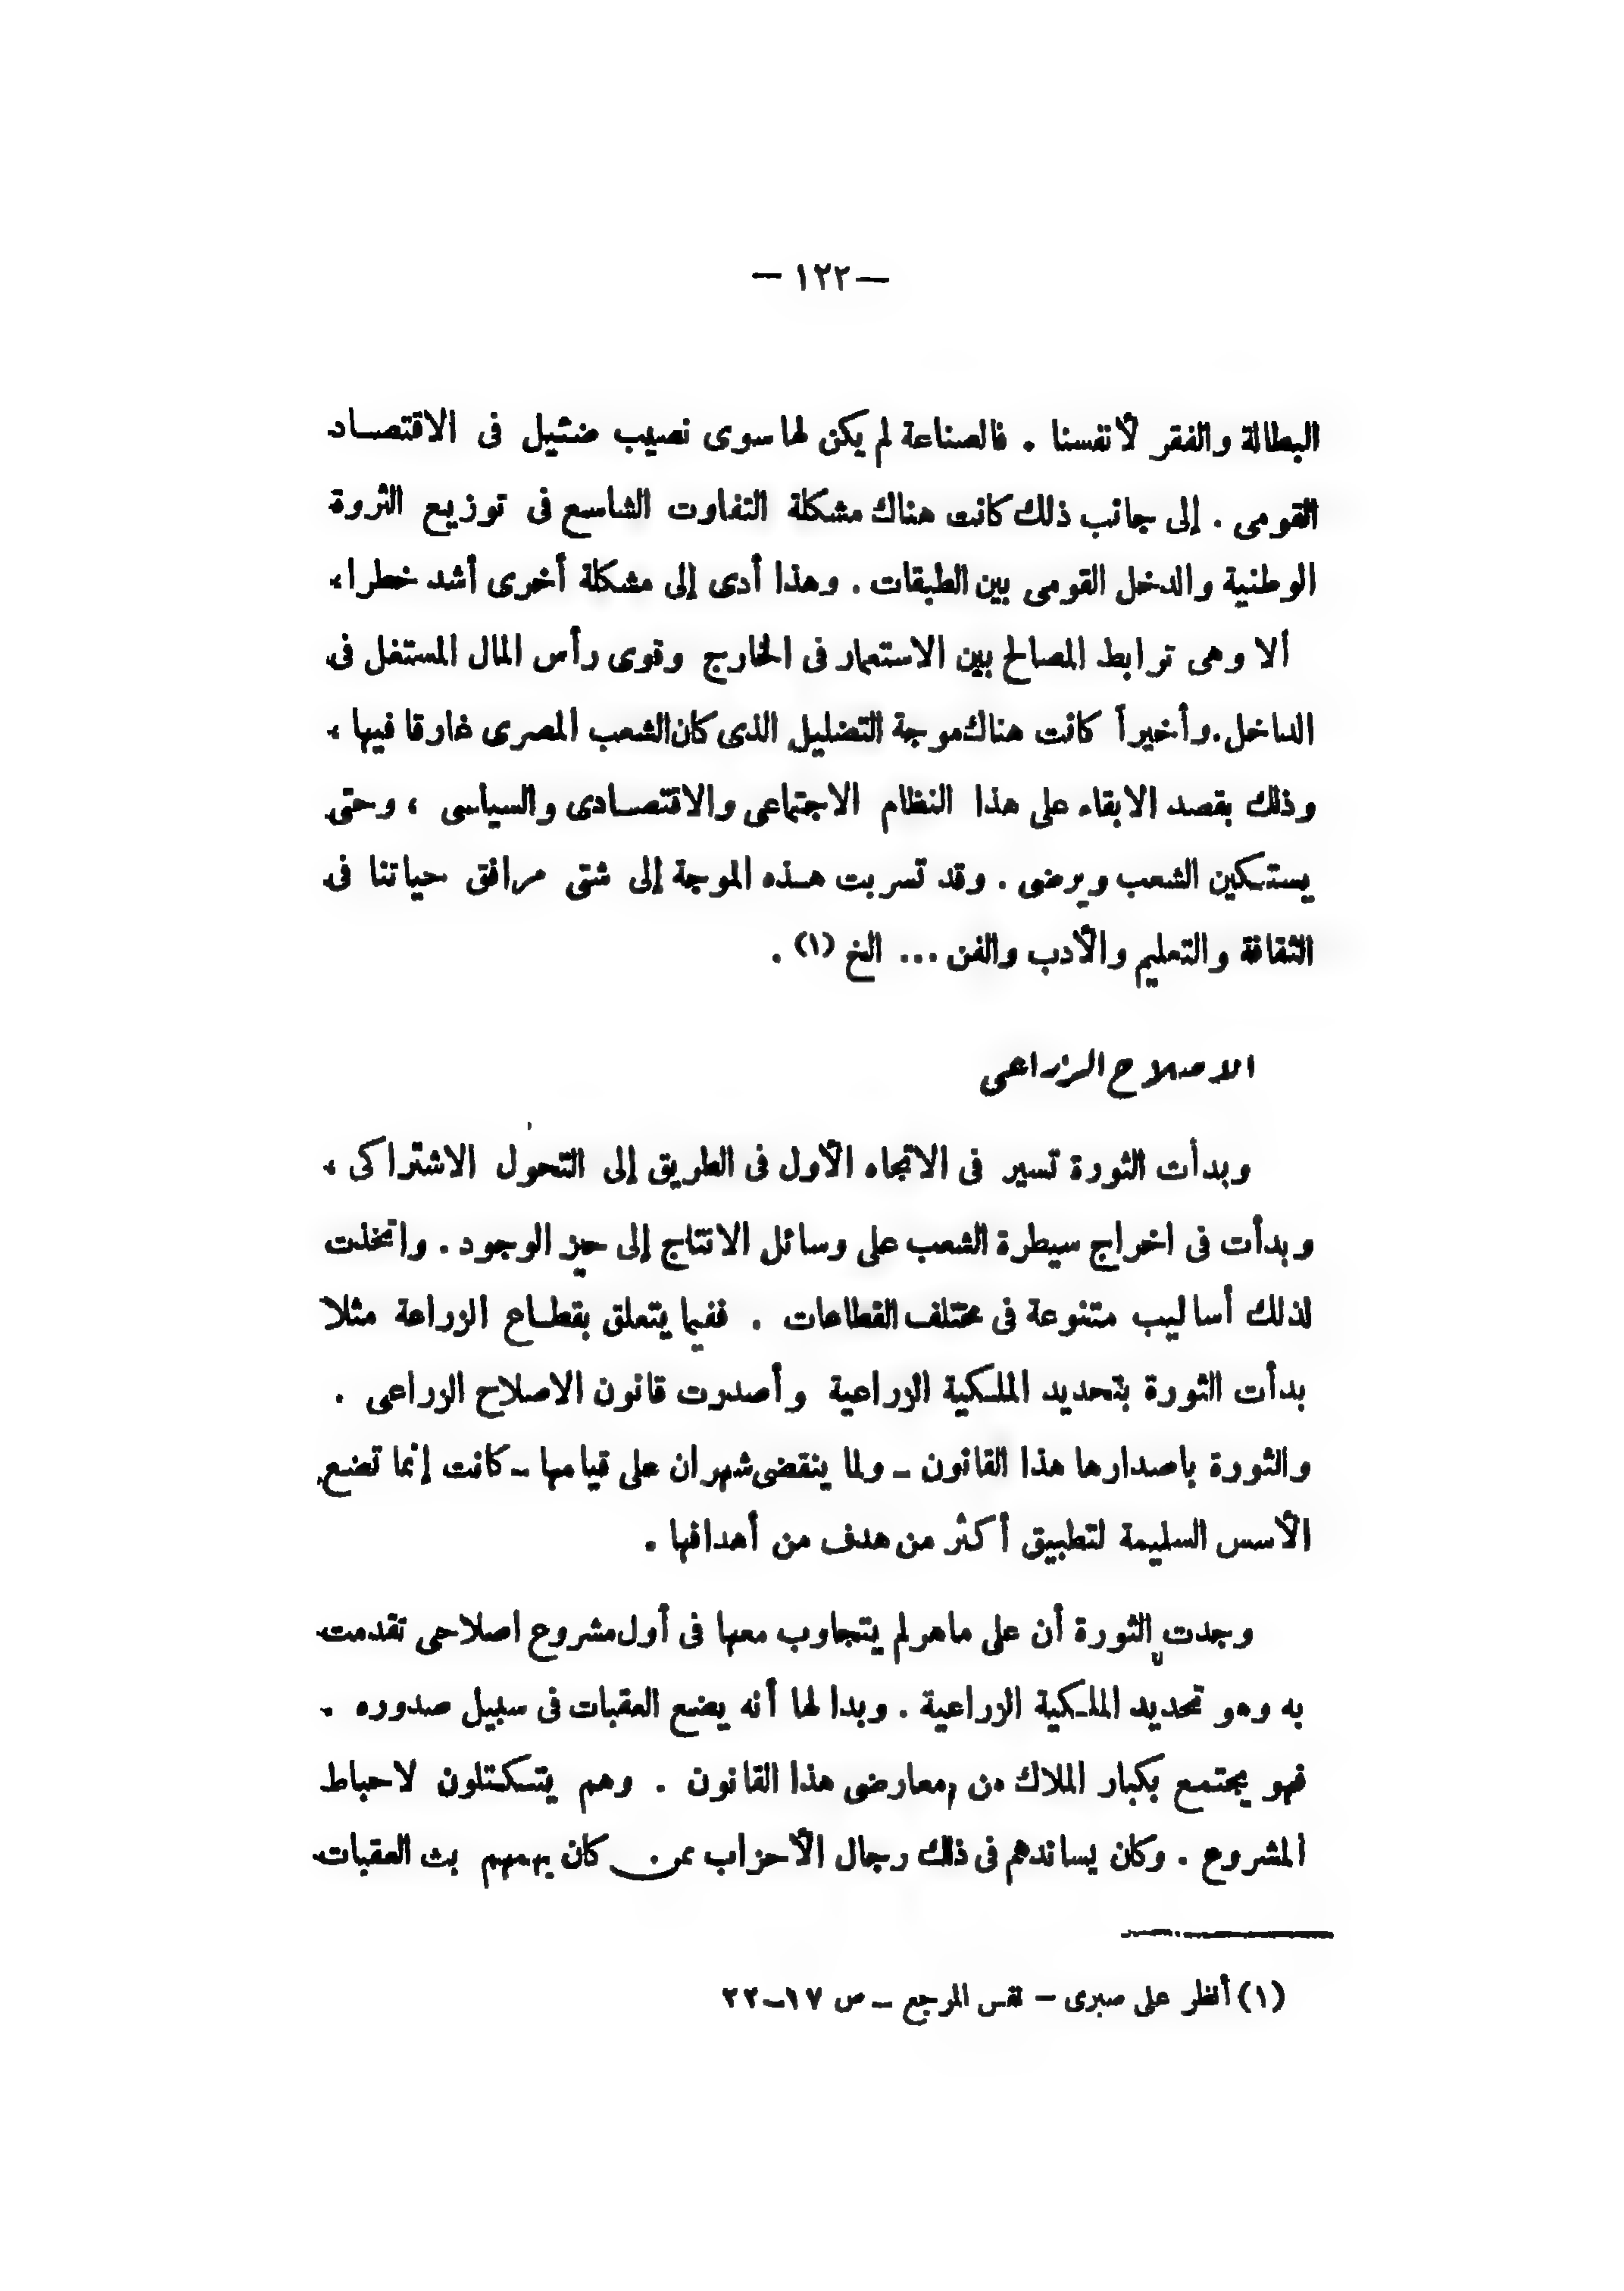 — ١٢٢ —
البطالة والفقر لأنفسنا . فالصناعة لم يكن لها سوى نصيب ضئيل فى الاقتصاد
القومى . إلى جانب ذلك كانت هناك مشكلة التفاوت الشاسع فى توزيع الثروة
الوطنية والدخل القومى بين الطبقات . وهذا أدى إلى مشكلة أخرى أشد خطرا،
ألا وهى ترابط المصالح بين الاستعمار فى الخارج وقوى رأس المال المستغل فى
الداخل . وأخيراً كانت هناك موجة التضليل الذى كان الشعب المصرى غارقا فيها ،
وذلك بقصد الابقاء على هذا النظام الاجتماعى والاقتصادى والسياسى ، وحتى
يستكين الشعب ويرضى . وقد تسربت هذه الموجة إلى شتى مرافق حياتنا فى
الثقافة والتعليم والأدب والفن ... الخ (١) .
الاصلاح الزراعى
وبدأت الثورة تسير فى الاتجاه الأول فى الطريق إلى التحول الاشتراكى ،
وبدأت فى اخراج سيطرة الشعب على وسائل الانتاج إلى حيز الوجود . واتخذت
لذلك أساليب متنوعة فى مختلف القطاعات . ففيما يتعلق بقطاع الزراعة مثلا
بدأت الثورة بتحديد الملكية الزراعية وأصدرت قانون الاصلاح الزراعى .
والثورة باصدارها هذا القانون ــ ولما ينقضى شهران على قيامها ــ كانت إنما تضع
الأسس السليمة لتطبيق أكثر من هدف من أهدافها .
وجدت الثورة أن على ماهر لم يتجاوب معها فى أول مشروع اصلاحى تقدمت
به وهو تحديد الملكية الزراعية . وبدا لها أنه يضع العقبات فى سبيل صدوره .
فهو يجتمع بكبار الملاك من معارضى هذا القانون . وهم يتكتلون لاحباط
المشروع . وكان يساندهم فى ذلك رجال الأحزاب ممن كان يهمهم بث العقبات
(١) أنظر على صبرى — نفس المرجع ــ ص ١٧ــ٢٢